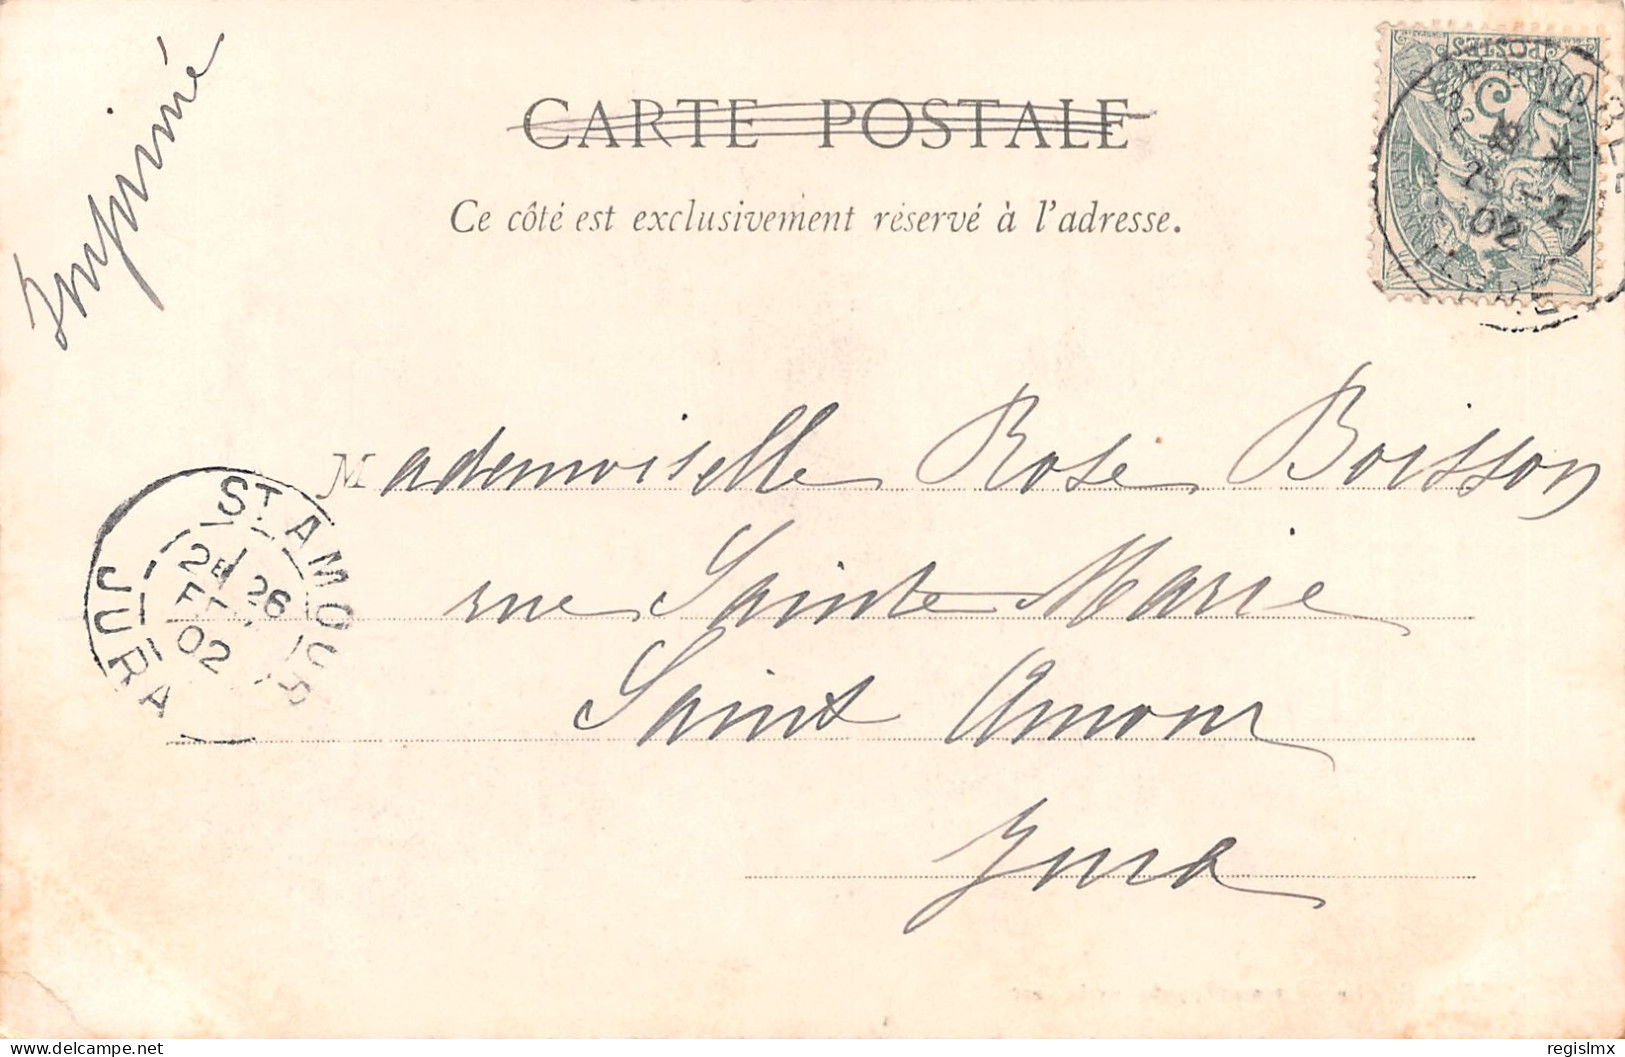 Imprimé
CARTE POSTALE
Ce côté est exclusivement réservé à l'adresse.
POSTES
5
02
Mademoiselle Rose Boisson
rue Sainte Marie
Saint Amour
Jura
ST. AMOUR
2E 26
02
JURA
delcampe.net
regislmx